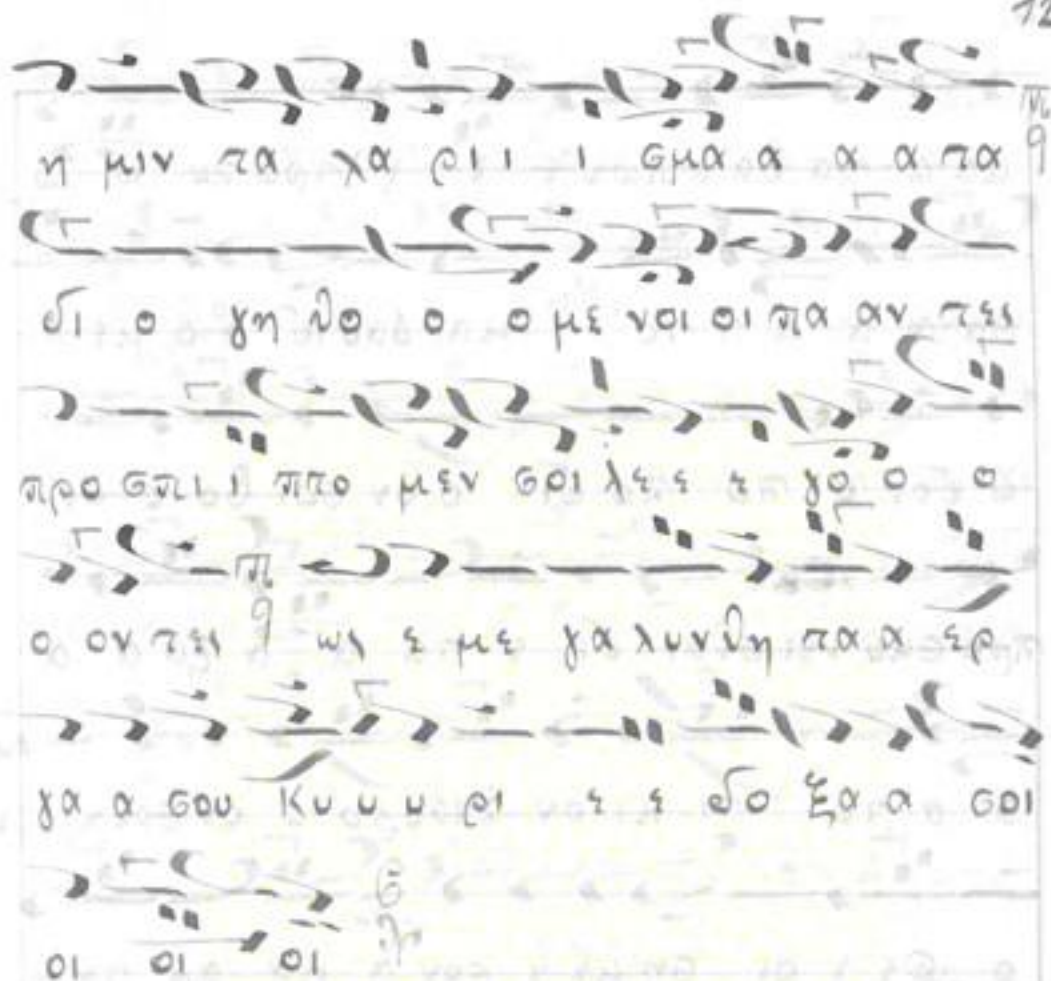 12
η μιν τα χα ρι ι ι σμα α α α τα
δι ο γη θο ο ο με νοι οι πα αν τες
προ σπι ι πτο μεν σοι λε ε ε γο ο ο
ο ον τες ως ε με γα λυν θη τα α ερ
γα α σου Κυ υ υ ρι ε ε δο ξα α σοι
οι οι οι